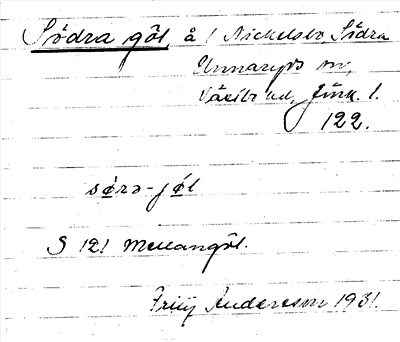 Södra göl, å 1 Nickelsbo, Södra
Unnaryds sn,
Västbo hd, Jönk. l.
122.
sørə-jøl
S 121 Mellangöl.
Fritz Andersson 1931.